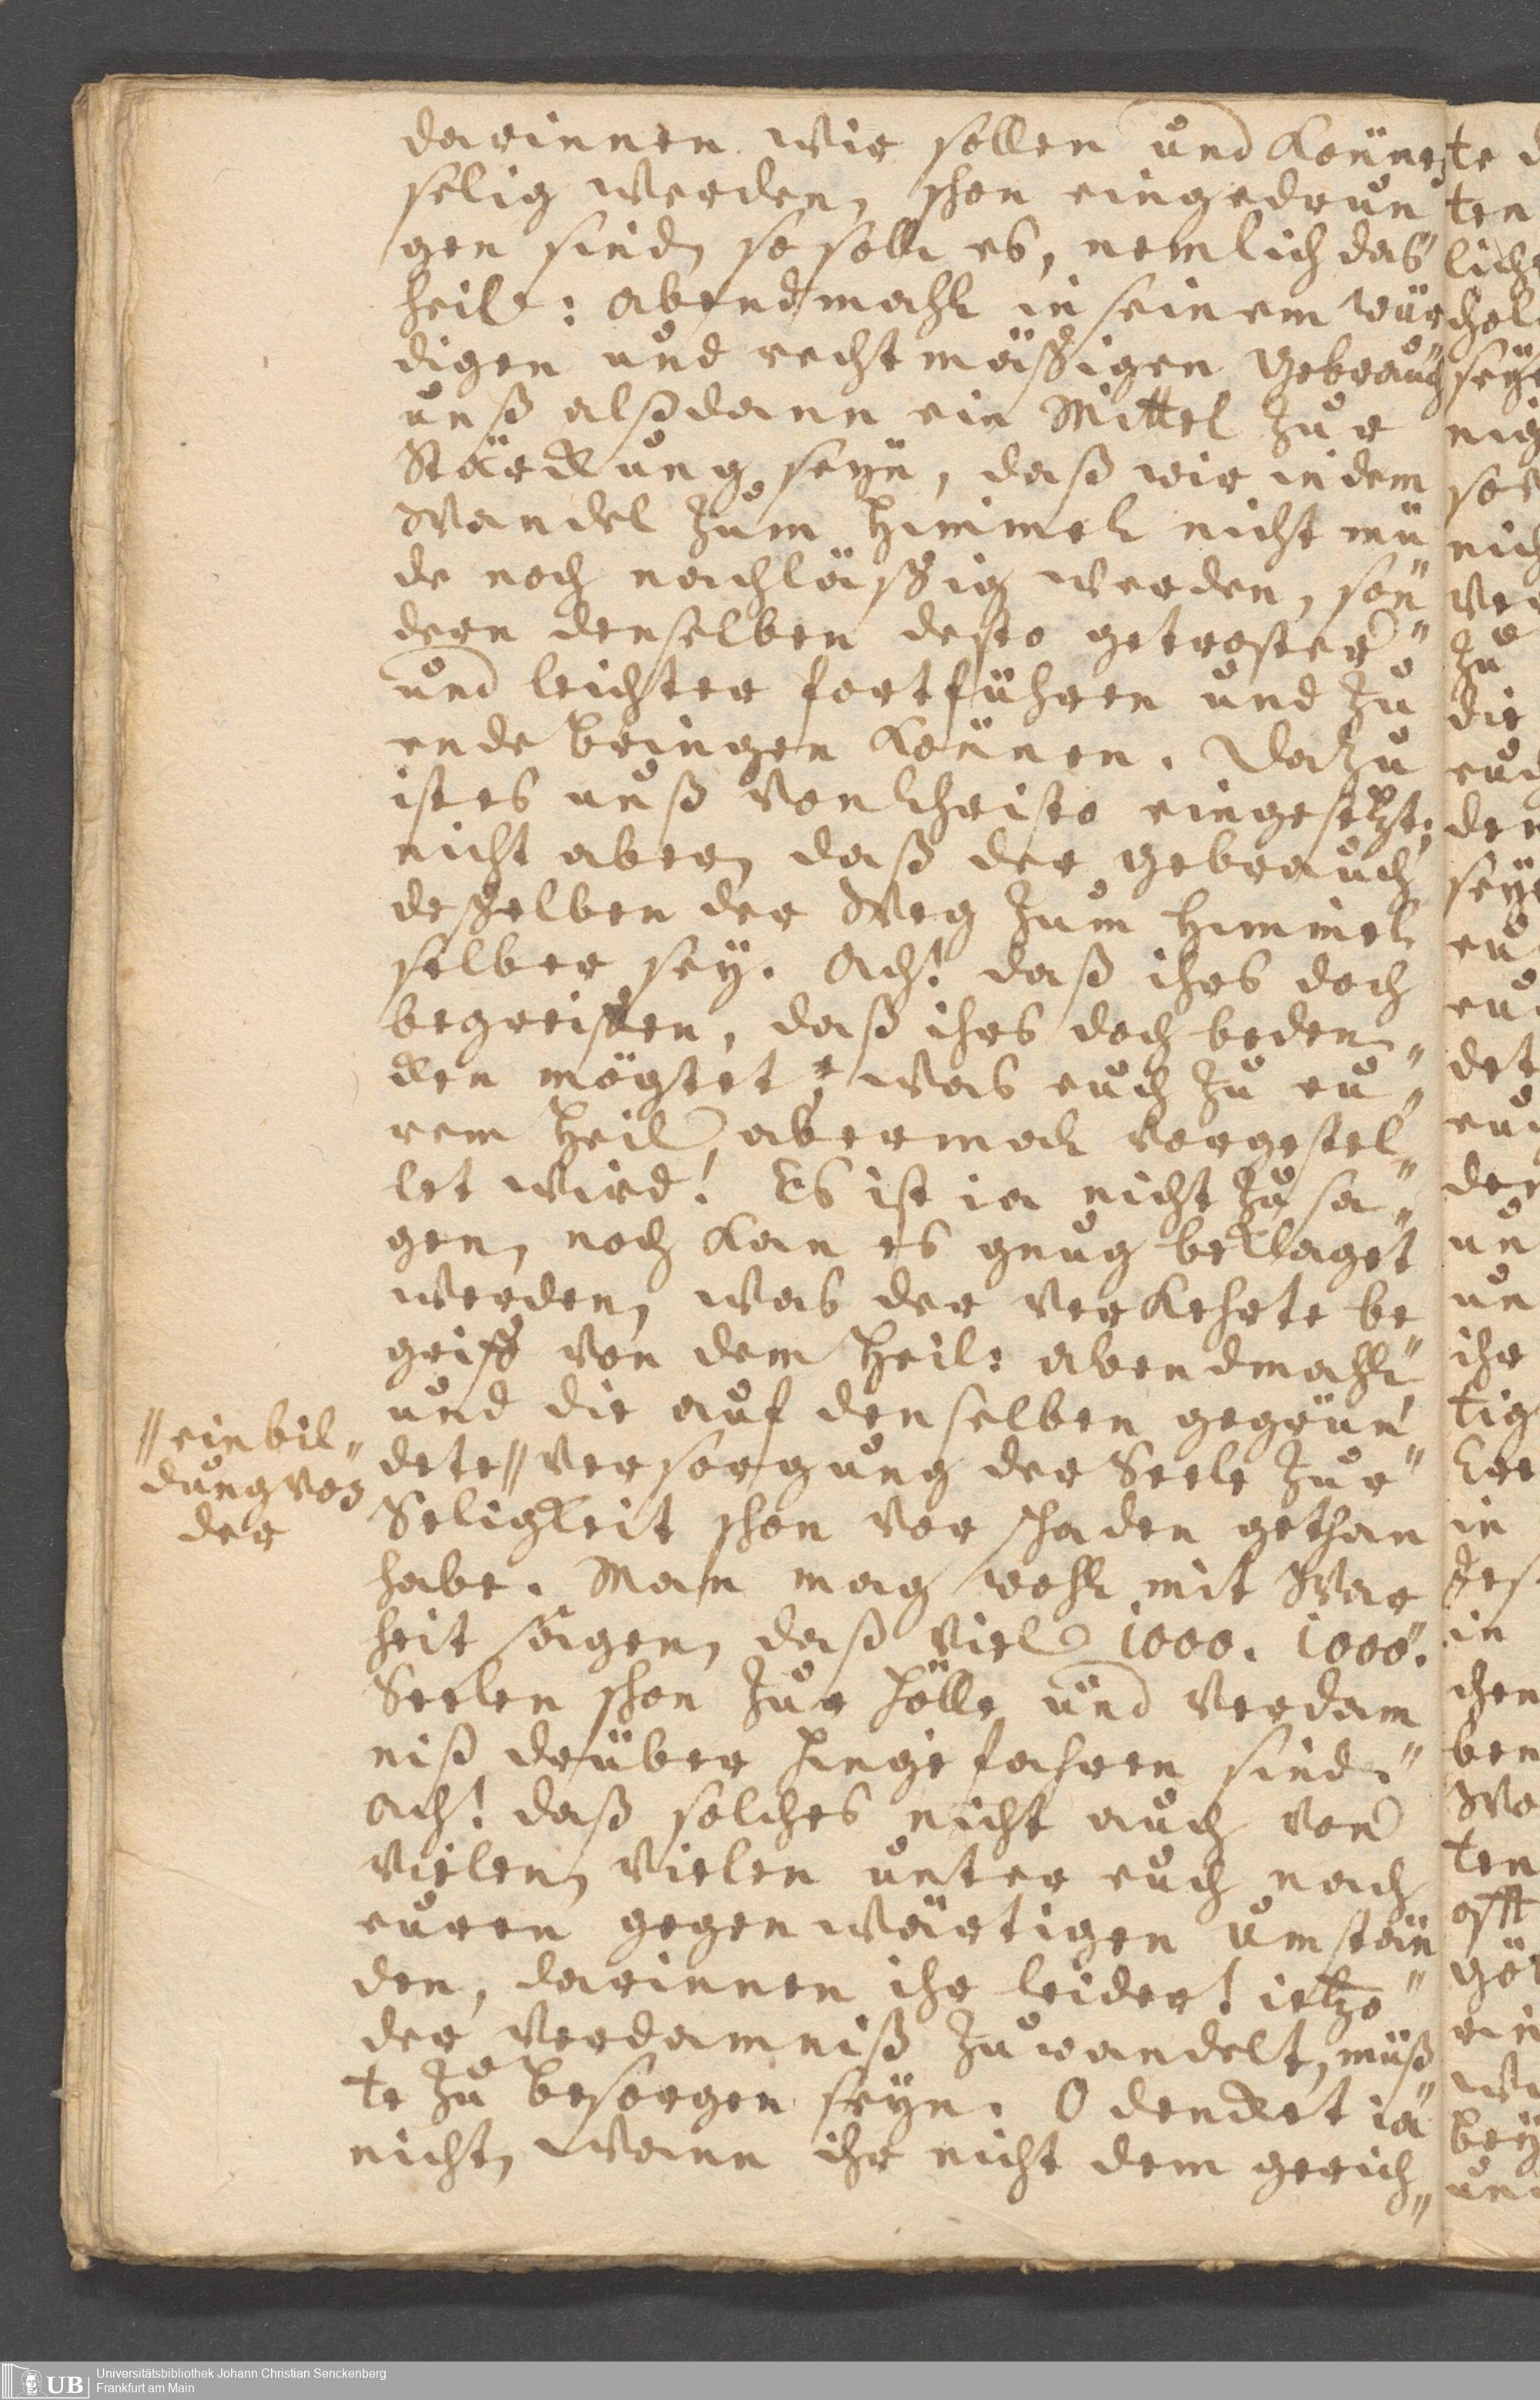 darinnen wir sollen und können
selig werden, schon eingedrun
gen sind, so soll es, nemlich das
heil: abendmahl in seinem wür
digen und rechtmäßigen Gebrauch
unß alßdann ein Mittel zur
Stärckung seyn, daß wir in dem
Wandel zum Himmel nicht mü
de noch nachläßig werden, son
dern denselben desto getroster
und leichter fortführen und zu
ende bringen können. Dazu
ist es unß von Christo eingesetzt;
nicht aber, daß der gebrauch
deßelben der Weg zum Himmel
selber sey. Ach! daß ihrs doch
begreiffen, daß ihrs doch beden„
cken mögtet, was euch zu eu„
rem Heil abermal vorgestel„
let wird! Es ist ia nicht zu sa„
gen, noch kan es gnug beklaget
werden, was der verkehrte be
griff von dem Heil: abendmahl
und die auf denselben gegrün
dete // versorgung der Seele zur
Seligkeit schon vor schaden gethan
habe. Man mag wohl mit War
heit sagen, daß viel 1000. 1000.
Seelen schon zur Hölle und Verdam
niß drüber hingefahren sind.
Ach! daß solches nicht auch von
vielen, vielen unter euch nach
euren gegenwärtigen umstän
den, darinnen ihr leider! ietzo
der Verdamniß zuwandelt, müß
te zu besorgen seyn. O dencket ia
nicht, wann ihr nicht dem gerich„
// einbil„
dung von
der
Universitätsbibliothek Johann Christian Senckenberg
Frankfurt am Main
UB